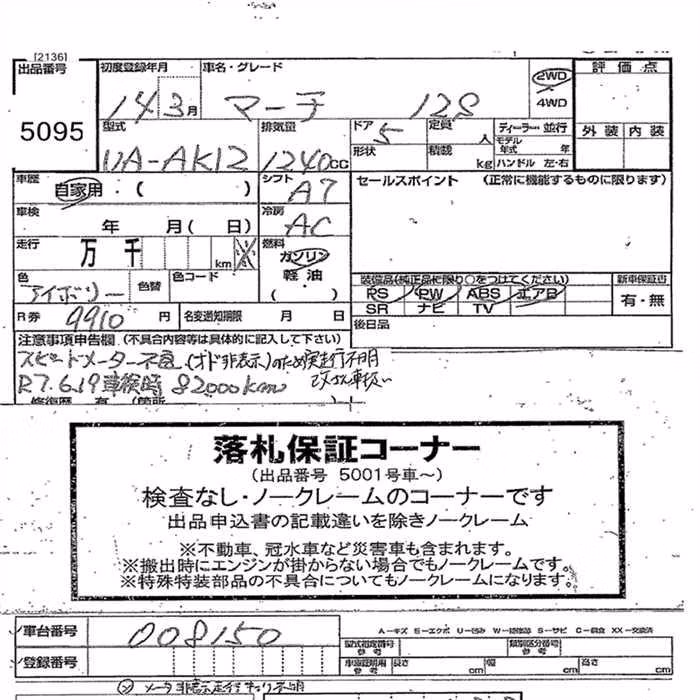 [2136]
出品番号 初度登録年月 車名・グレード 評価点
5095
14 3月 マーチ 12S 2WD 4WD
外装 内装
型式 排気量 ドア 定員 ディーラー 並行
UA-AK12 1240cc 5 人 モデル年式 年
形状 積載 kg ハンドル 左・右
車歴 自家用 ( ) シフト AT
セールスポイント (正常に機能するものに限ります)
車検 年 月( 日) 冷房 AC
走行 万 千 km 燃料 ガソリン 軽油 ( )
色 アイボリー 色替 色コード
装備品(純正品に限り○をつけてください) 新車保証書
PS PW ABS エアB 有・無
SR ナビ TV
R券 9910 円 名変通知期限 月 日
後日品
注意事項申告欄 (不具合内容等は具体的に記入して下さい)
スピードメーター不良 (オド非表示)のため実走行不明
R7.6.19車検時 82000km 改ざん車扱い
修復歴 有 (箇所
落札保証コーナー
(出品番号 5001号車~)
検査なし・ノークレームのコーナーです
出品申込書の記載違いを除きノークレーム
※不動車、冠水車など災害車も含まれます。
※搬出時にエンジンが掛からない場合でもノークレームです。
※特殊特装部品の不具合についてもノークレームになります。
A-キズ E-エクボ U-凹み W-補修跡 S-サビ C-腐食 XX-交換済
車台番号 008150 型式指定番号 参考 類別区分番号 参考
登録番号 車庫証明用 参考 長さ cm 幅 cm 高さ cm